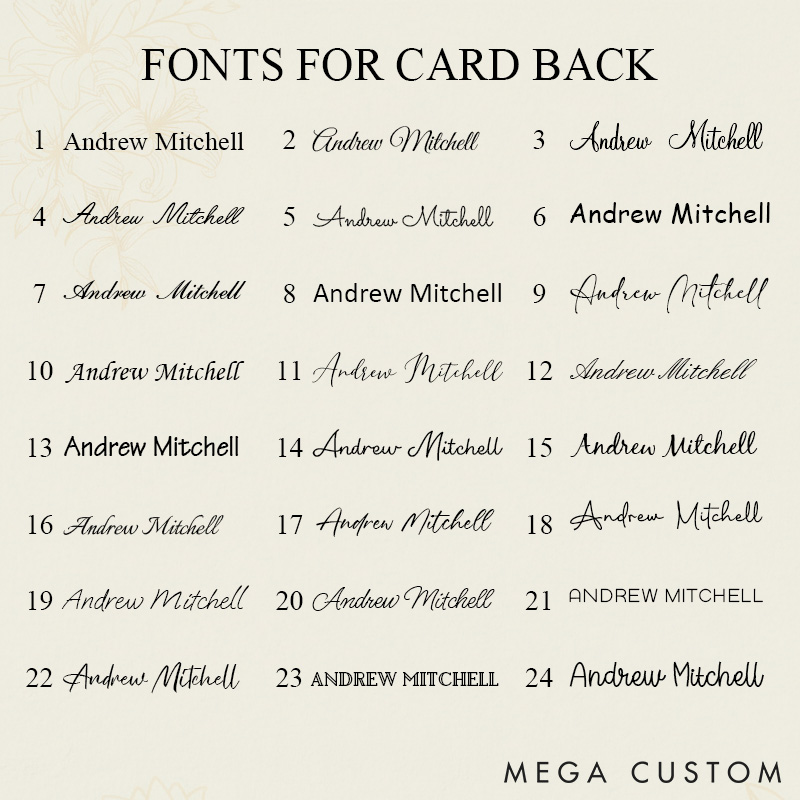 FONTS FOR CARD BACK
1 Andrew Mitchell 2 Andrew Mitchell 3 Andrew Mitchell
4 Andrew Mitchell 5 Andrew Mitchell 6 Andrew Mitchell
7 Andrew Mitchell 8 Andrew Mitchell 9 Andrew Mitchell
10 Andrew Mitchell 11 Andrew Mitchell 12 Andrew Mitchell
13 Andrew Mitchell 14 Andrew Mitchell 15 Andrew Mitchell
16 Andrew Mitchell 17 Andrew Mitchell 18 Andrew Mitchell
19 Andrew Mitchell 20 Andrew Mitchell 21 ANDREW MITCHELL
22 Andrew Mitchell 23 ANDREW MITCHELL 24 Andrew Mitchell
MEGA CUSTOM